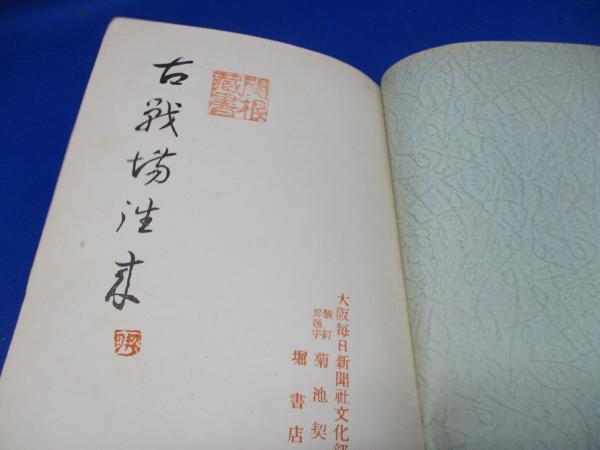 大阪毎日新聞社文化部
装釘
並題字
菊池契
堀書店
古戦場往来
蔵書